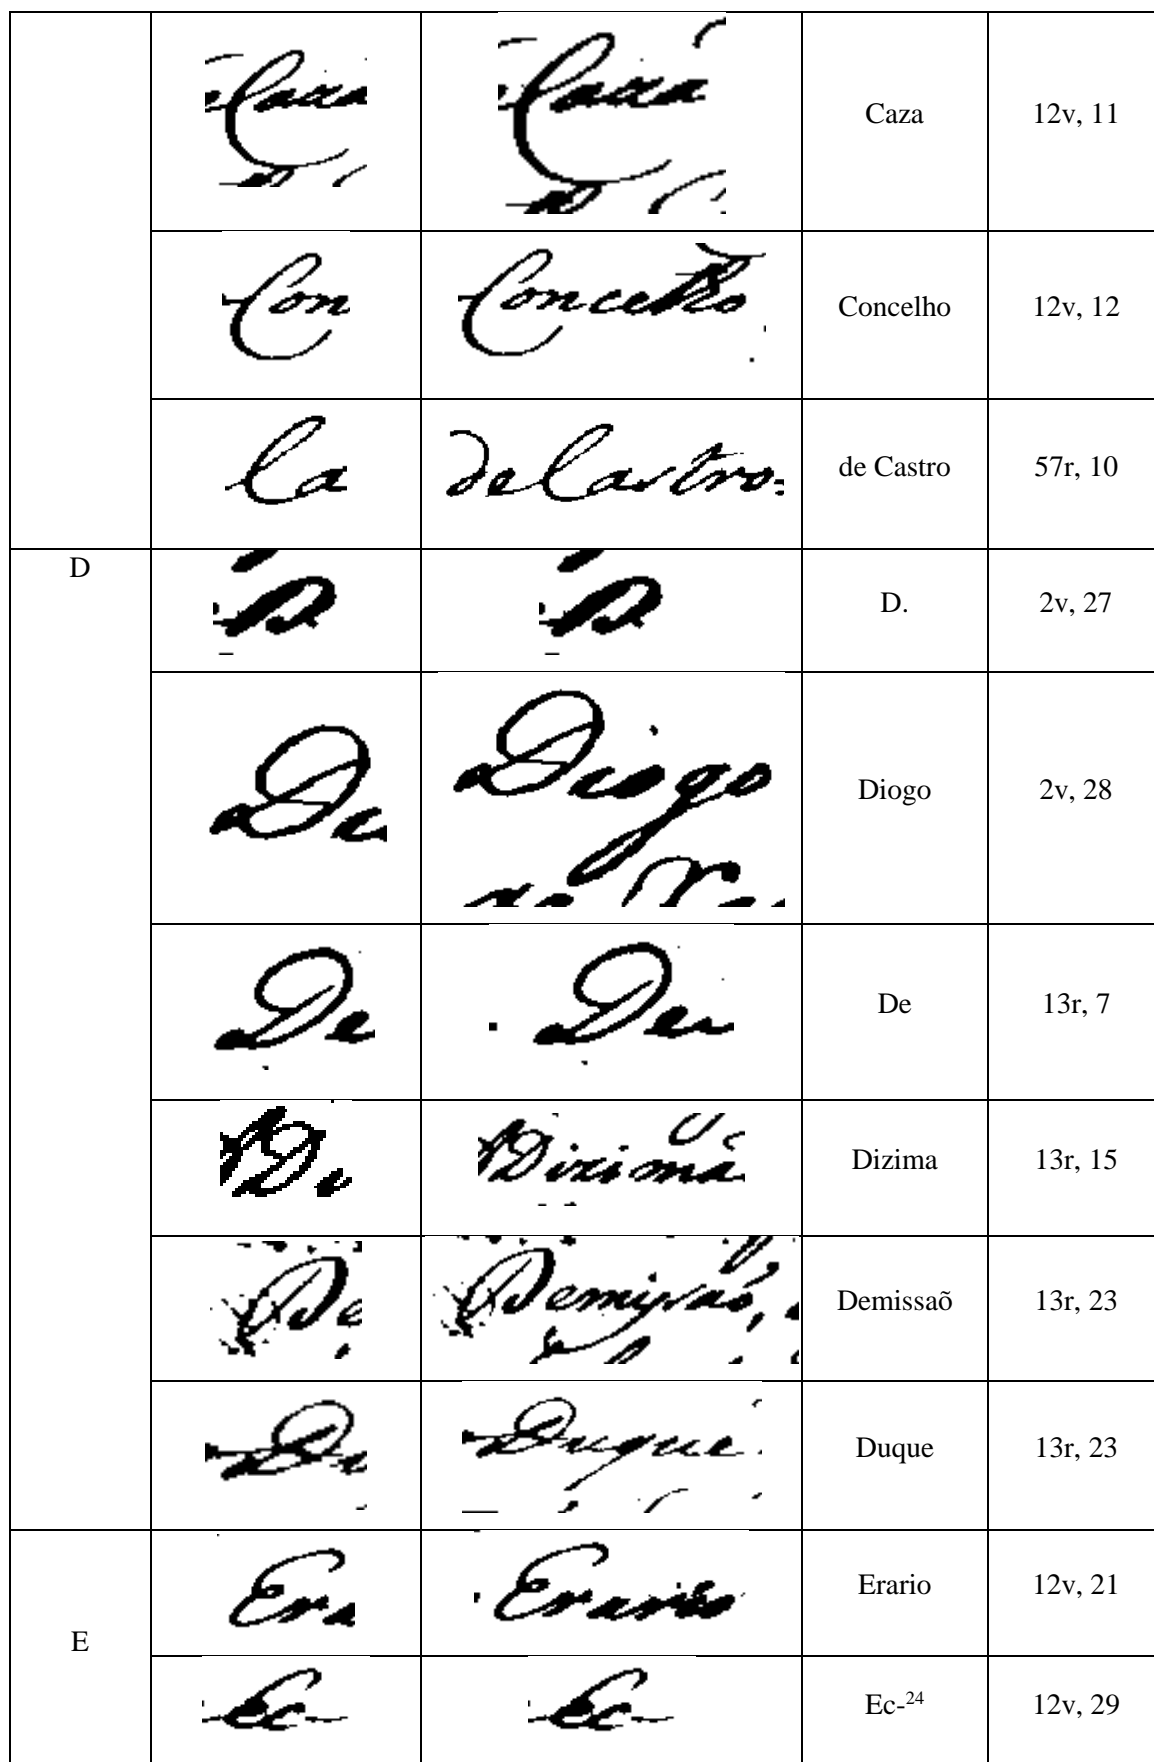 Caza Caza Caza 12v, 11
Con Concelho Concelho 12v, 12
Ca de Castro de Castro 57r, 10
D
D D D. 2v, 27
Di Diogo Diogo 2v, 28
De De De 13r, 7
Di Dizima Dizima 13r, 15
De Demissaõ, Demissaõ 13r, 23
Du Duque Duque 13r, 23
E
Era Erario Erario 12v, 21
Ec- Ec- Ec-24 12v, 29